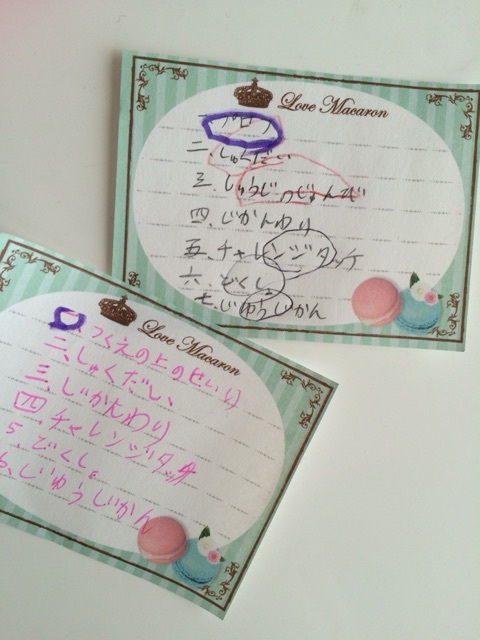 Love Macaron
二、しゅくだい
三、しゅうじのじゅんび
四、じかんわり
五、チャレンジタッチ
六、どくしょ
七、じゆうじかん
Love Macaron
つくえの上のせいり
二、しゅくだい
三、じかんわり
四 チャレンジタッチ
5、どくしょ
6、じゆうじかん